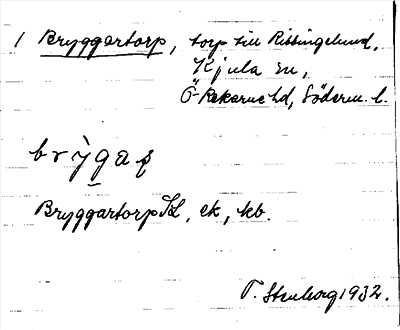 1 Bryggartorp, torp till Rissingelund,
Kjula sn,
Ö-Rekarne hd, Söderm. l.
brỳgaʂ
Bryggartorp Kl, ek, kb.
T. Stenborg 1932.